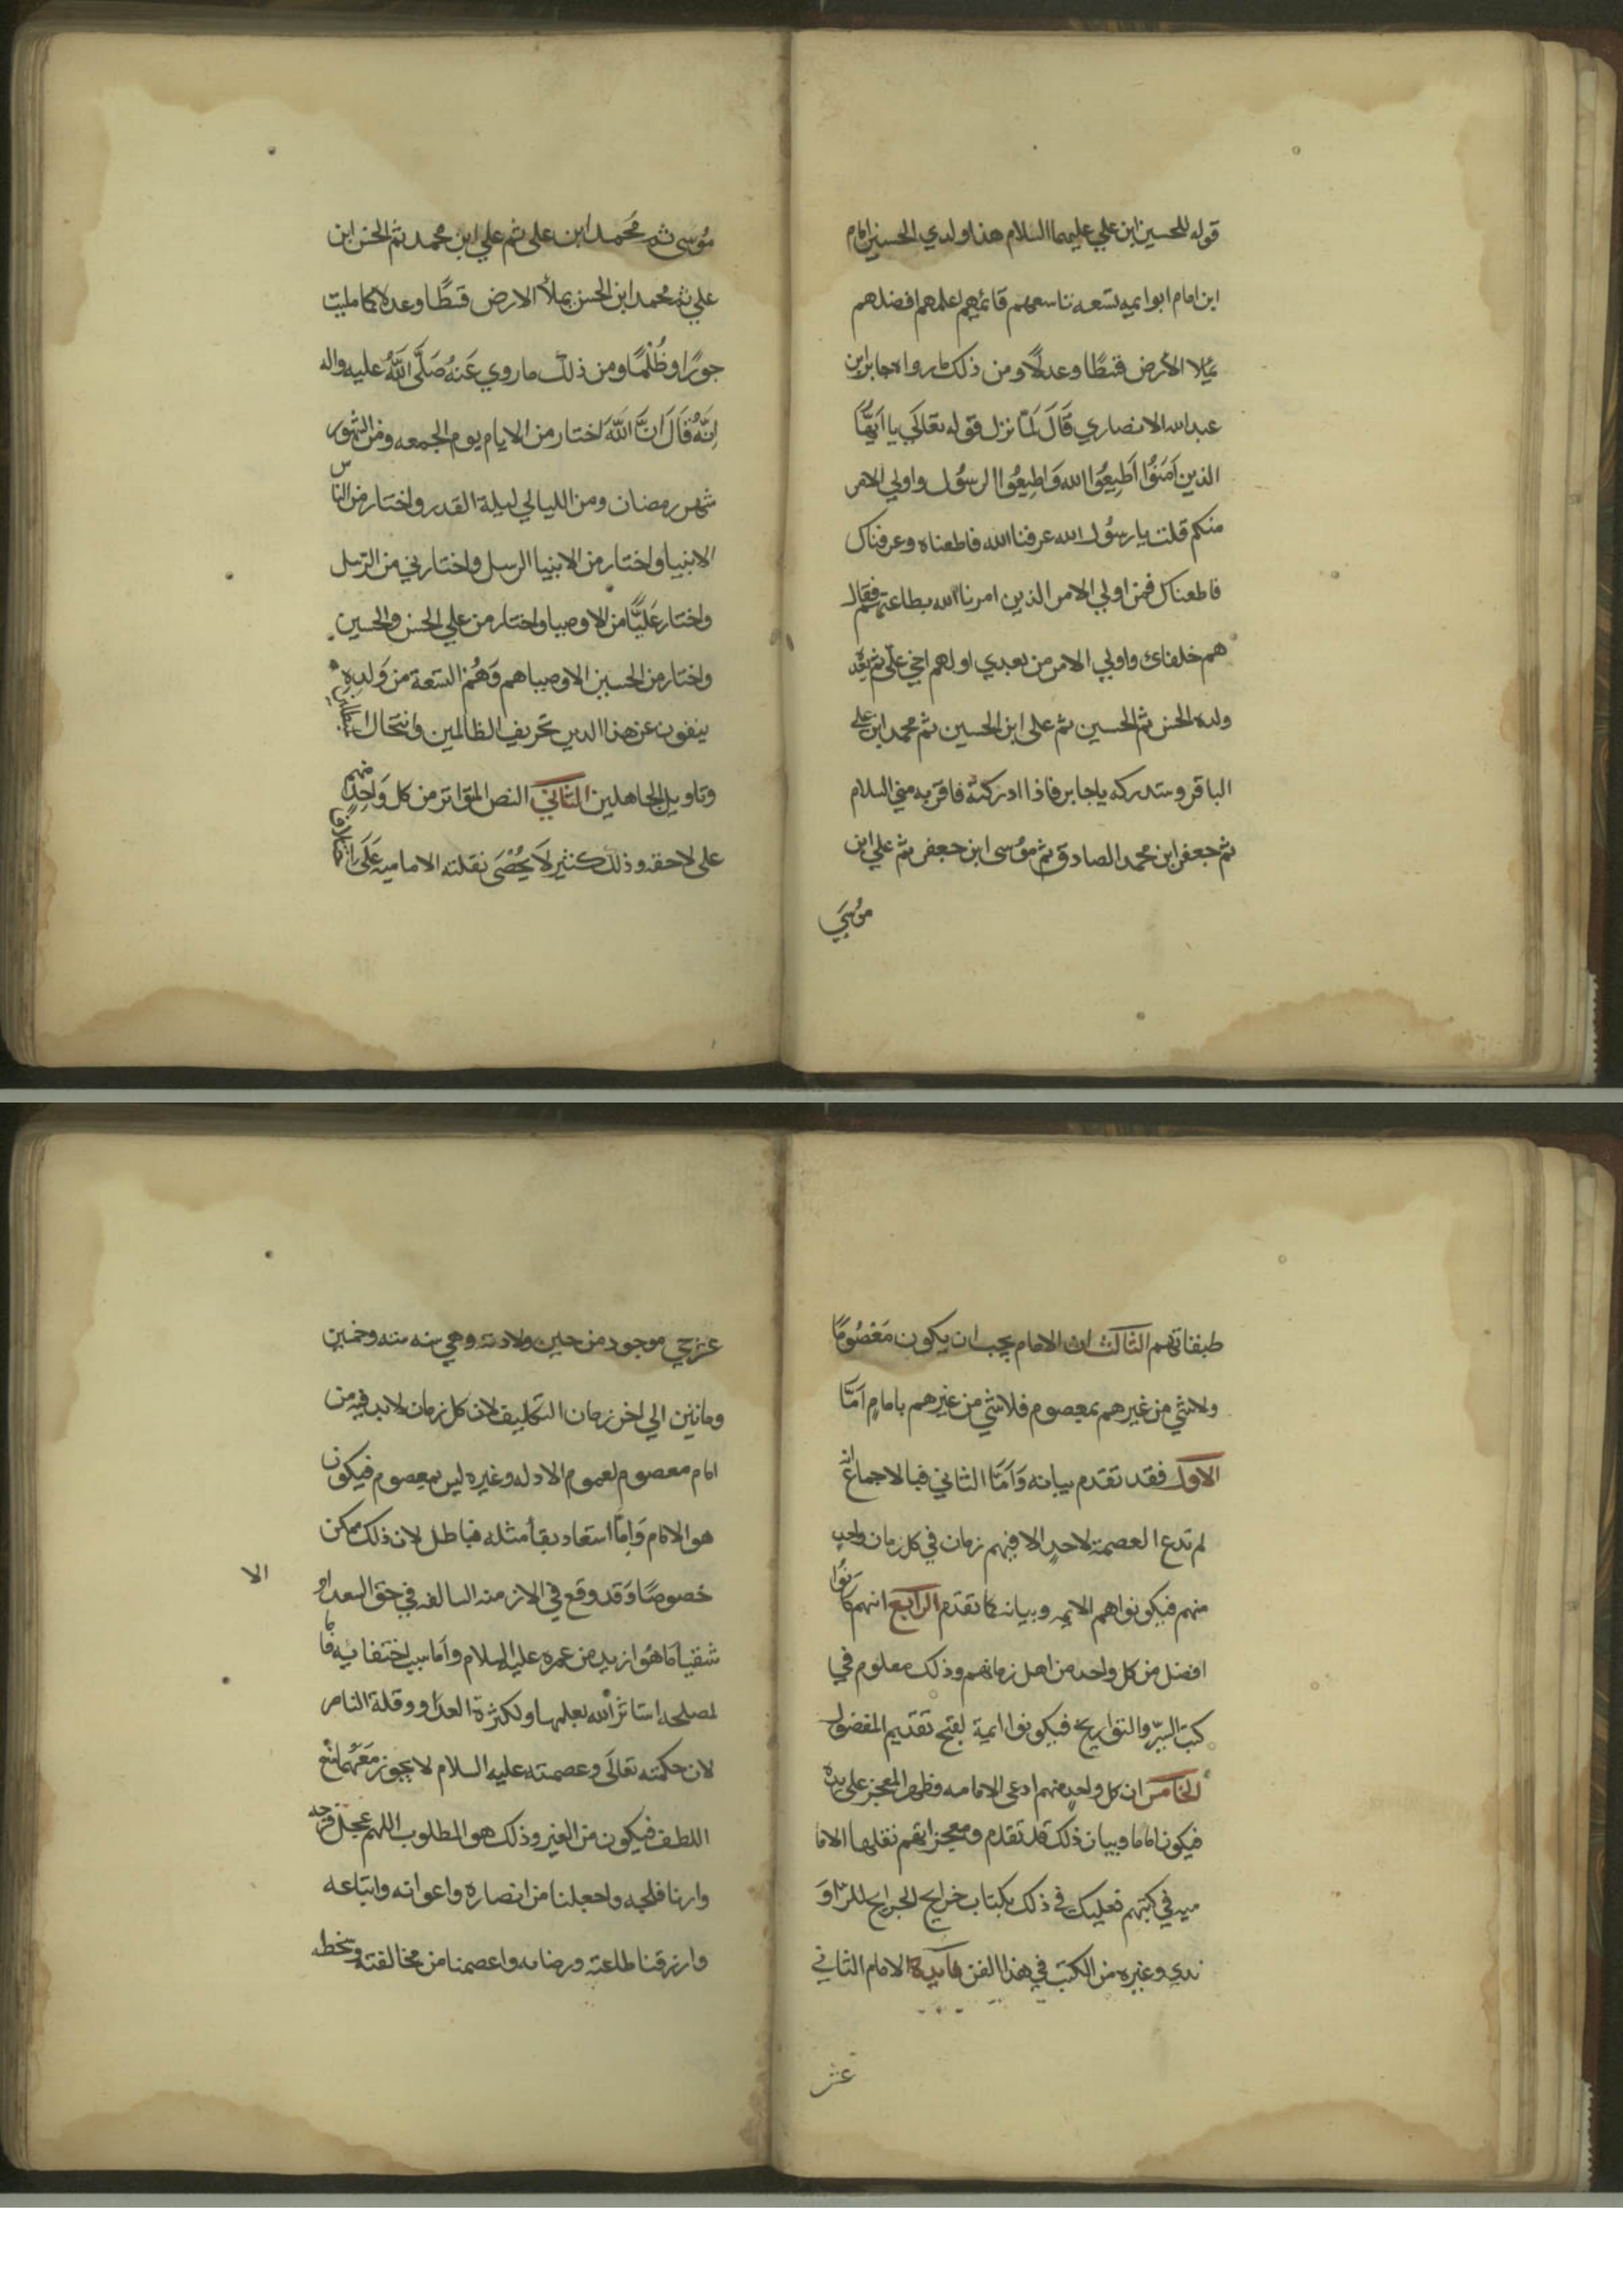 قوله للحسين ابن علي عليهما السلام هذا ولدي الحسين امام
ابن امام ابو ايمه تسعه تاسعهم قائمهم اعلمهم افضلهم
يملا الأرض قسطًا وعدلًا ومن ذلك ما رواه جابر ابن
عبد الله الانصاري قَالَ لَمّا نزل قوله تعالَي يا اَيُّهَا
الذين اَمَنُوُا اَطِيعُوا الله وَاطِيعُوا الرسُول واولي الامر
منكم قلت يا رسُول الله عرفنا الله فاطعناه وعرفناك
فاطعناك فمن اولي الامر الذين امرنا الله بطاعتهم فقال
هم خلفاى واولي الامر من بعدي اولهم اخي علّي ثم بعده
ولده الحسن ثم الحسين ثم على ابن الحسين ثم محمد ابن على
الباقر وستدركه يا جابر فاذا ادركته فاقربه مني السلام
ثم جعفر ابن محمد الصادق ثم موُسى ابن جعفر ثم علي ابن
موُسَي
موُسى ثم مُحَمد ابن على ثم علي ابن محمد ثم الحسن ابن
علي ثم محمد ابن الحسن يملأ الارض قسطًا وعدلا كما مليت
جورًا وظُلْمًا ومن ذلك ما روي عَنهُ صَلَّى اللَّهُ عليه واله
اِنَّهُ قَالَ انَّ اللَّهَ اختار من الايام يوم الجمعه ومن الشهور
شهر رمضان ومن الليالي ليلة القدر واختار من الناس
الانبيا واختار من الانبيا الرسل واختارني من الرسل
واختار عَليًّا من الاوصيا واختار من علي الحسن والحسين
واختار من الحسين الاوصيا هم وَهُمْ التسعة من وَلدِهِ
ينفون عن هذا الدين تحريف الظالمين وانتحال
وتاويل الجاهلين الثاني النص المتواتر من كل وَاحِدٍ منهم
على لاحقه وذلك كثير لَا يُحْصَى نقلته الاماميه عَلَى
طبقاتهم الثالث ان الامام يجب ان يكون مَعْصُومًا
ولا شي من غيرهم بمعصوم فلا شي من غيرهم بامامٍ اَمّا
الاول فقد تقدم بيانه وَاَمّا الثاني فبالاجماع انه
لم تدع العصمة لاحدٍ الا فيهم زمان في كل زمان واحدٍ
منهم فيكونوا هم الايمه وبيانه كما تقدم الرابع انهم كانوُا
افضل من كل واحد من اهل زمانهم وذلك معلوم في
كتب السيّر والتواريخ فيكونوا ايمة لقبح تقديم المفضول
الخامس ان كل واحدٍ منهم ادعى الامامه وظهر المعجز على يده
فيكون اماما وبيان ذلك قد تقدم ومعجزاتهم نقلها الاما
ميه في كتبهم فعليك في ذلك بكتاب خرايج الجرايح للراو
ندي وغيره من الكتب في هذا الفن فايدة الامام الثاني
عشر
عشر حي موجود من حين ولادته وهي سنه سته وخمسين
وماتين الي اخر زمان التكليف لان كل زمان لا بد فيه من
امام معصوم لعموم الادله وغيره ليس بمعصوم فيكون
هو الامام وَاِمّا استعاد بقأ مثله فباطل لان ذلك ممكن
خصوصًا وَقد وقع في الازمنه السالفه في حق السعدا و
الا
شقيا ما هُو ازيد من عمره عليه السلام وأما سبب اختفايه فاما
لمصلحه استاثر الله بعلمها او لكثرة العداو وقلة الناصر
لان حكمته تعالَى وعصمته عليه السلام لا يجوز مَعَهُمَا منع
اللطف فيكون من الغير وذلك هو المطلوب اللهم عجل فرجه
وارنا فلجه واجعلنا من انصاره واعوانه واتباعه
وارزقنا طاعته ورضاه واعصمنا من مخالفته وسخطه